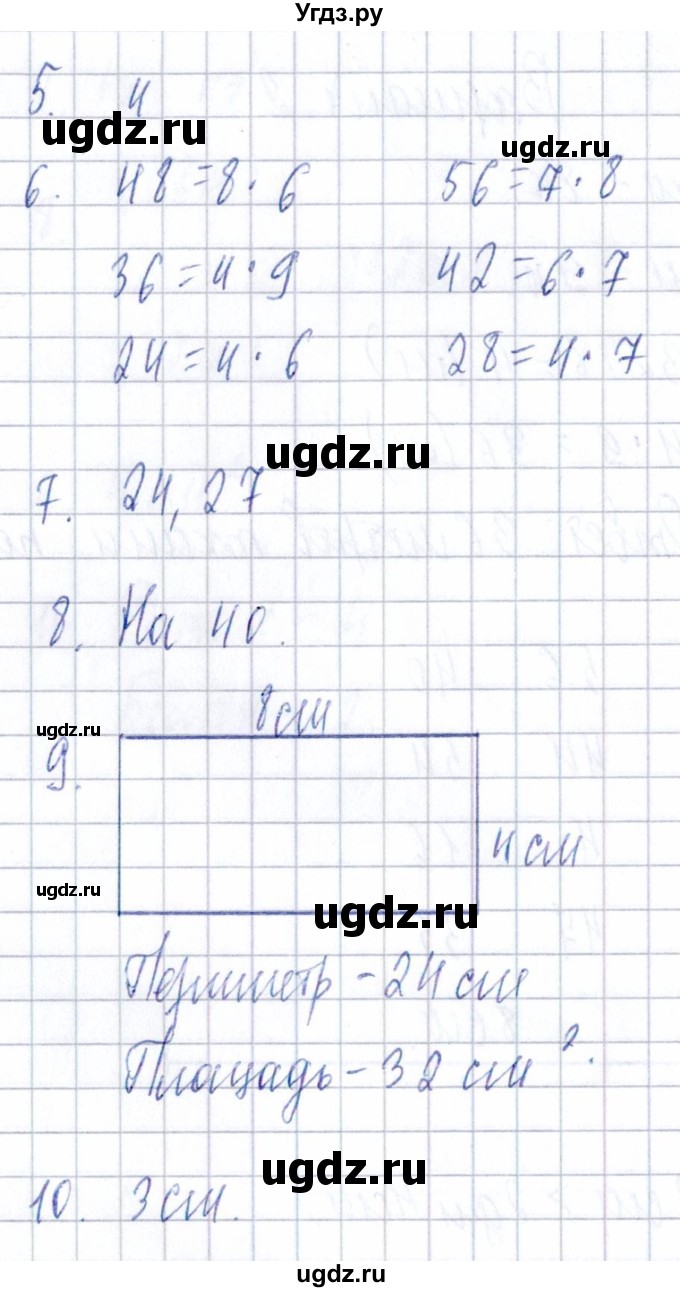 Угдз.ру
5. 4
ugdz.ru
ugdz.ru
6. 48=8·6 56=7·8
36=4·9 42=6·7
24=4·6 28=4·7
ugdz.ru
7. 24, 27
8. На 40.
8 см
ugdz.ru
9.
4 см
ugdz.ru
ugdz.ru
Периметр - 24 см
Площадь - 32 см².
ugdz.ru
10. 3 см.
ugdz.ru